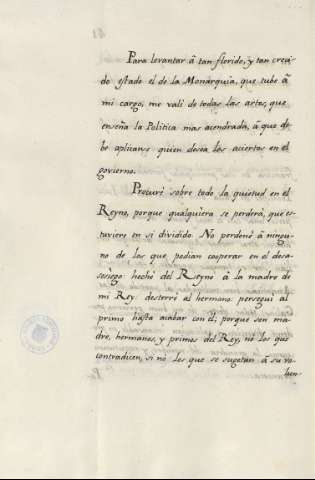 Para levantar â tan florido, y tan creci-
do estado el de la Monarquia, que tube â
mi cargo, me valì de todas las artes, que
enseña la Politica mas acendrada, â que de-
be aplicarse quien desea los aciertos en el
govierno.
Procurè sobre todo la quietud en el
Reyno, porque qualquiera se perderà, que es-
tuviere en si dividido. No perdonè â ningu-
no de los que podian cooperar en el desa-
sosiego: hechè del Reyno â la madre de
mi Rey: desterrè al hermano: perseguì al
primo hasta acabar con èl; porque son ma-
dre, hermanos, y primos del Rey, nò los que
contradicen, si nò los que se sugetan â su vo-
lun-